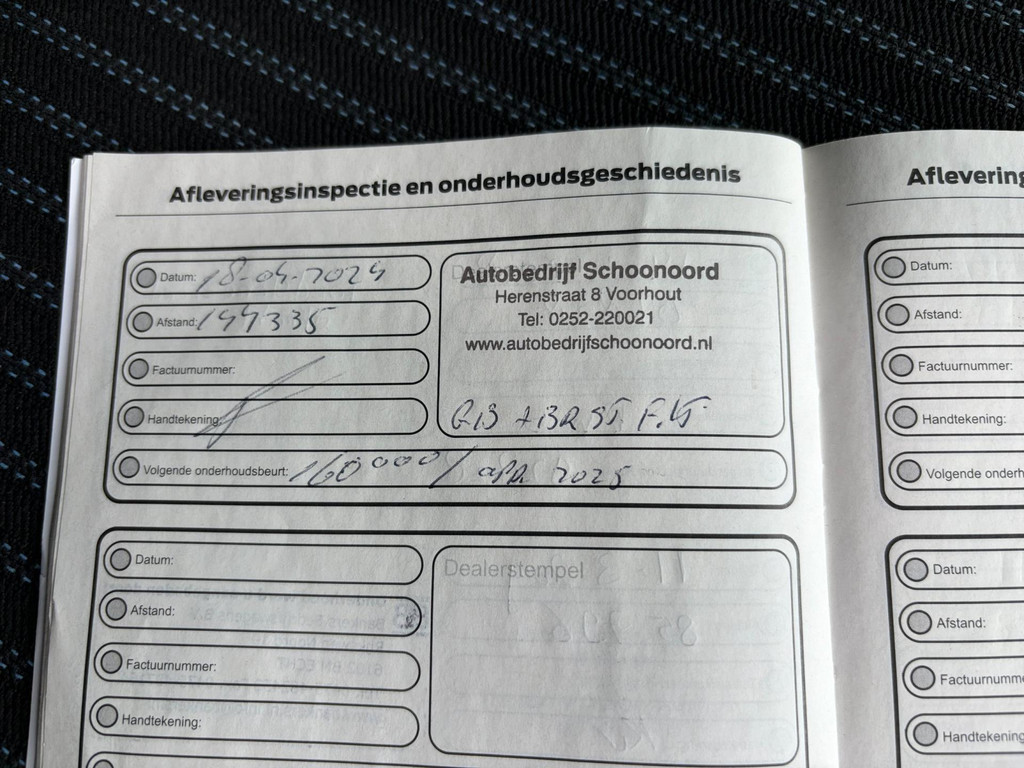 Afleveringsinspectie en onderhoudsgeschiedenis
Datum: 18-04-2024
Afstand: 144335
Factuurnummer:
Handtekening:
Autobedrijf Schoonoord
Herenstraat 8 Voorhout
Tel: 0252-220021
www.autobedrijfschoonoord.nl
Volgende onderhoudsbeurt: 160000 / apr 2025
Datum:
Afstand:
Factuurnummer:
Handtekening:
Dealerstempel
Aflevering
Datum:
Afstand:
Factuurnummer:
Handtekening:
Volgende onderh
Datum:
Afstand:
Factuurnumme
Handtekening